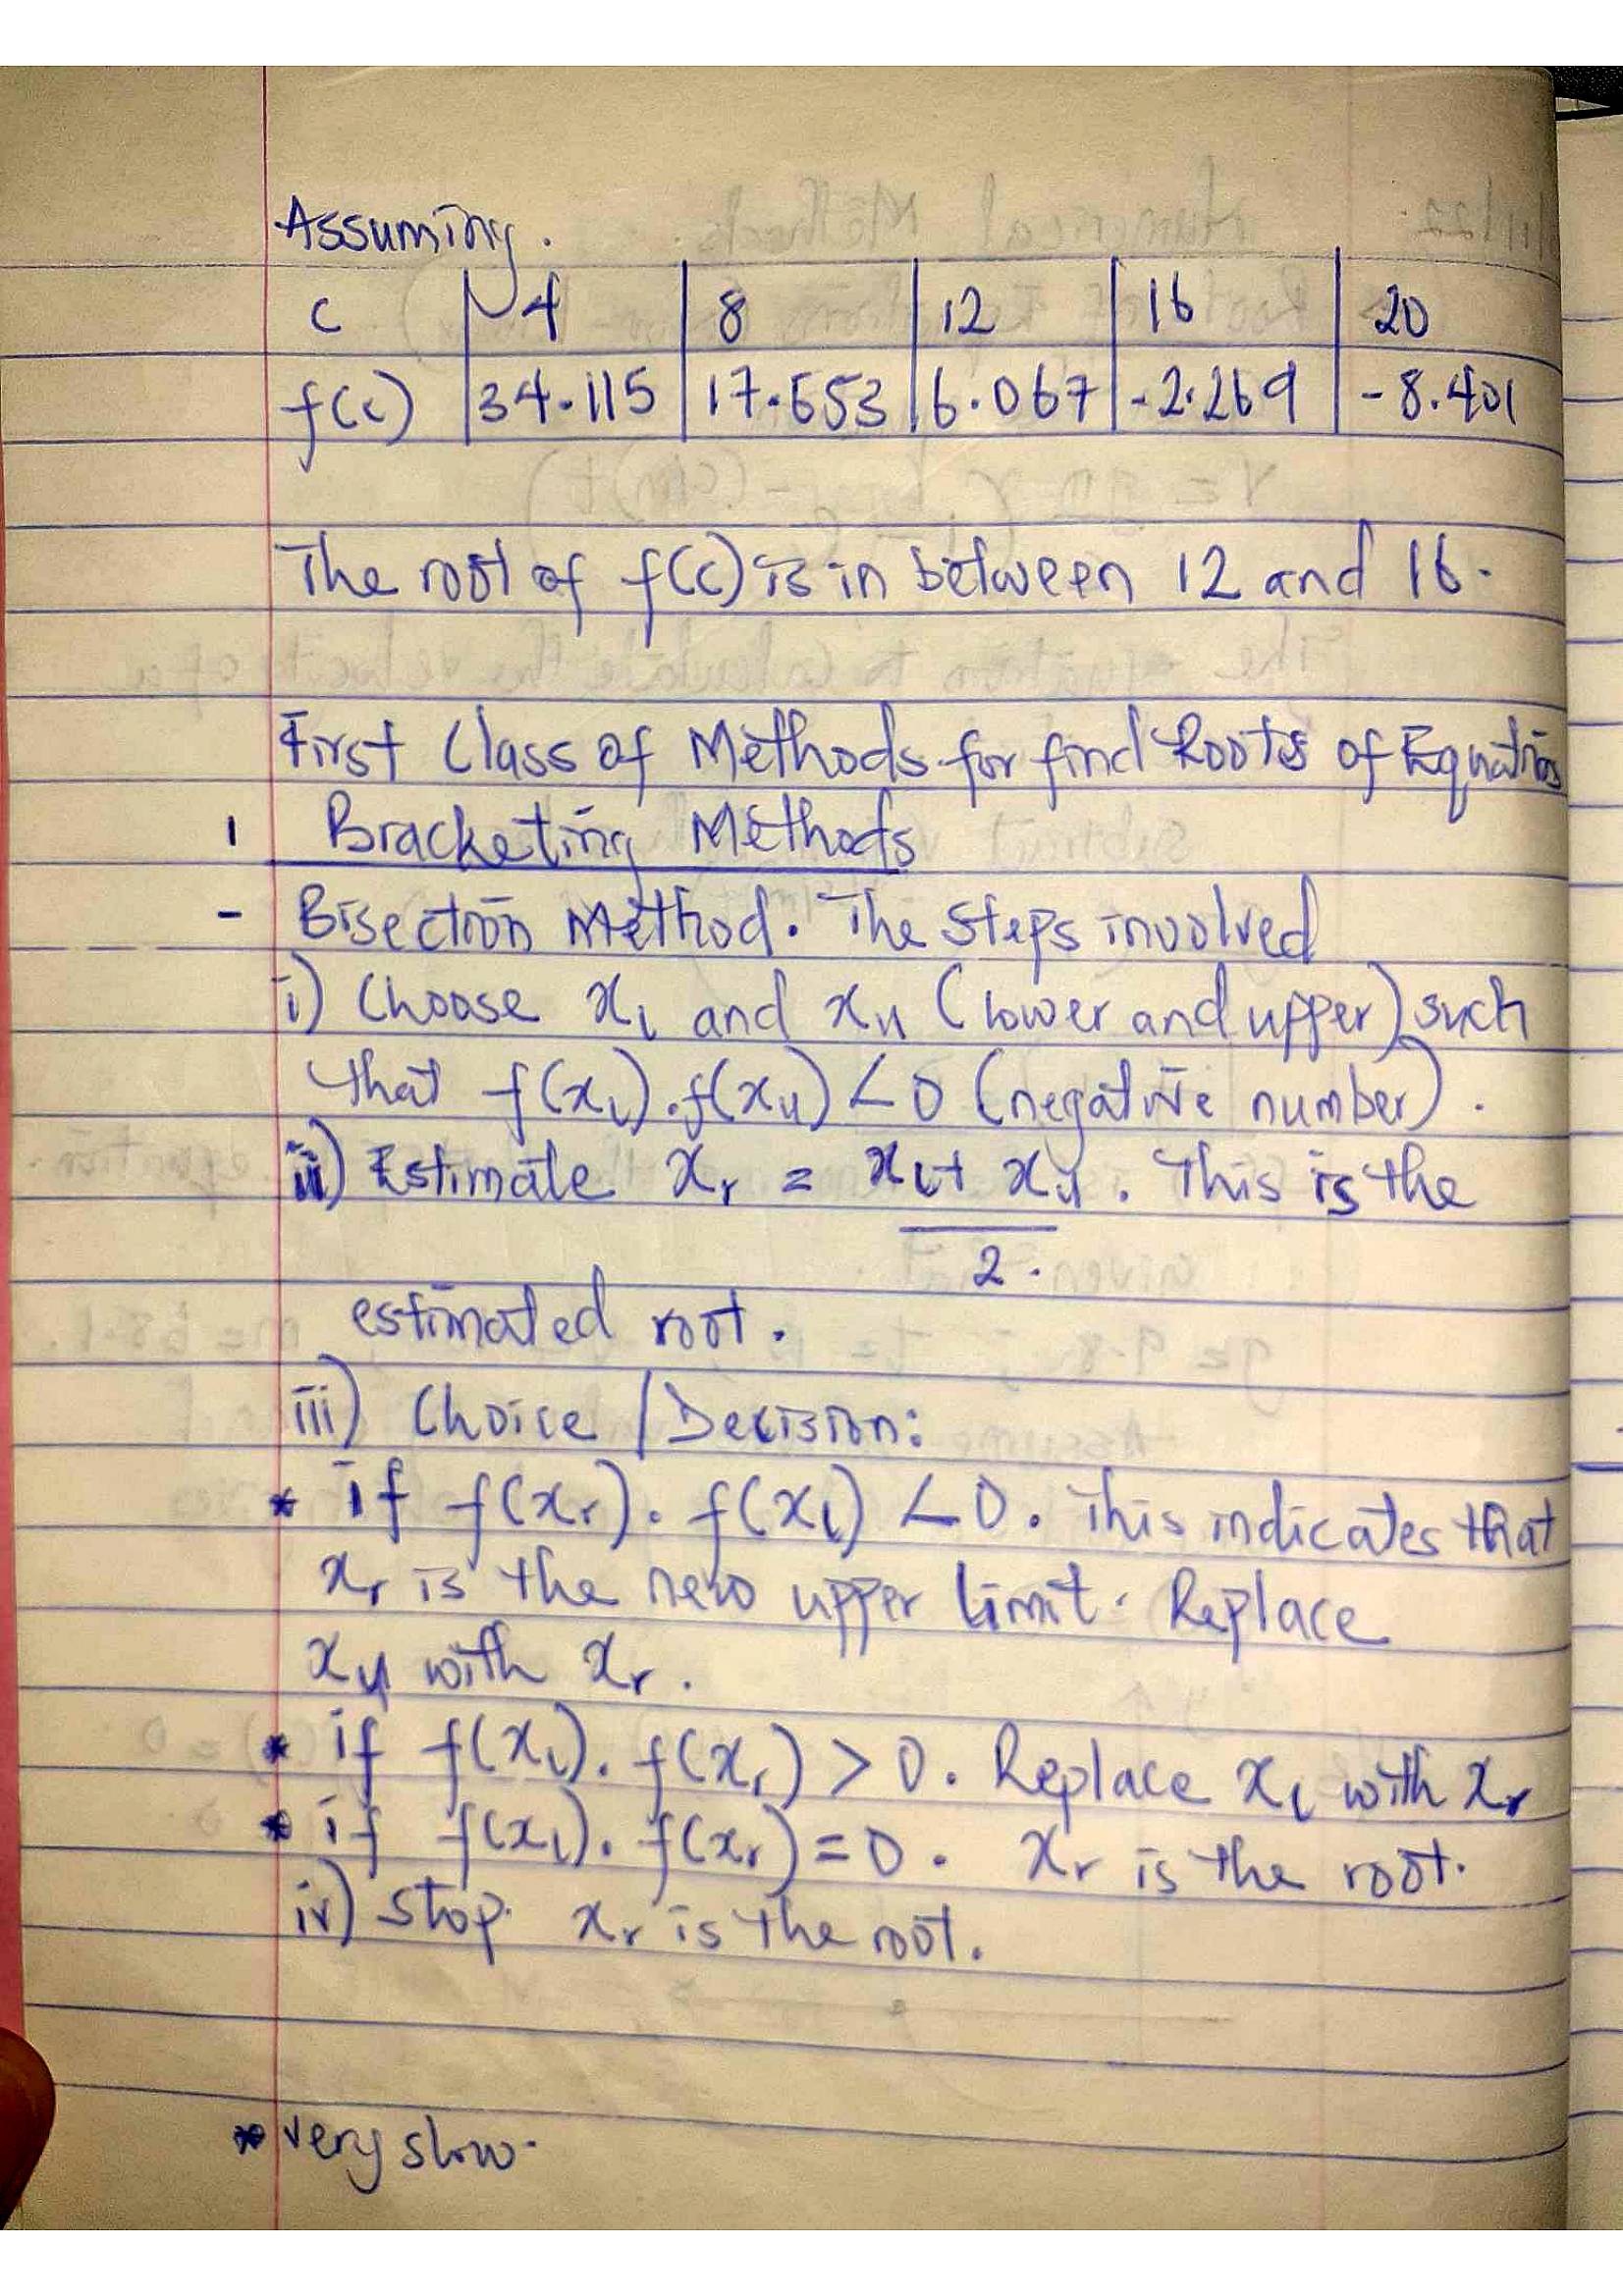 Assuming.
c | 4 | 8 | 12 | 16 | 20
f(c) | 34.115 | 17.653 | 6.067 | -2.269 | -8.401
The root of f(c) is in between 12 and 16.
First Class of Methods for find Roots of Equations
1 Bracketing Methods
- Bisection Method. The Steps involved
i) Choose xl and xu (lower and upper) such
that f(xl).f(xu) < 0 (negative number).
ii) Estimate xr = xl + xu . This is the
2.
estimated root.
iii) Choice / Decision:
* if f(xr). f(xl) < 0. This indicates that
xr is the new upper limit. Replace
xu with xr.
* if f(xl). f(xr) > 0. Replace xl with xr
* if f(xl). f(xr) = 0. xr is the root.
iv) Stop. xr is the root.
* very slow.